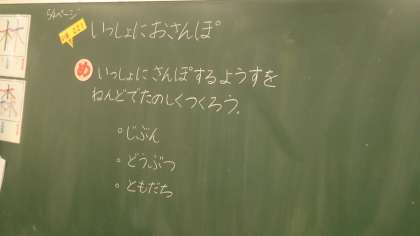 54ページ
いっしょにおさんぽ
め いっしょにさんぽするようすを
ねんどでたのしくつくろう。
○じぶん
○どうぶつ
○ともだち